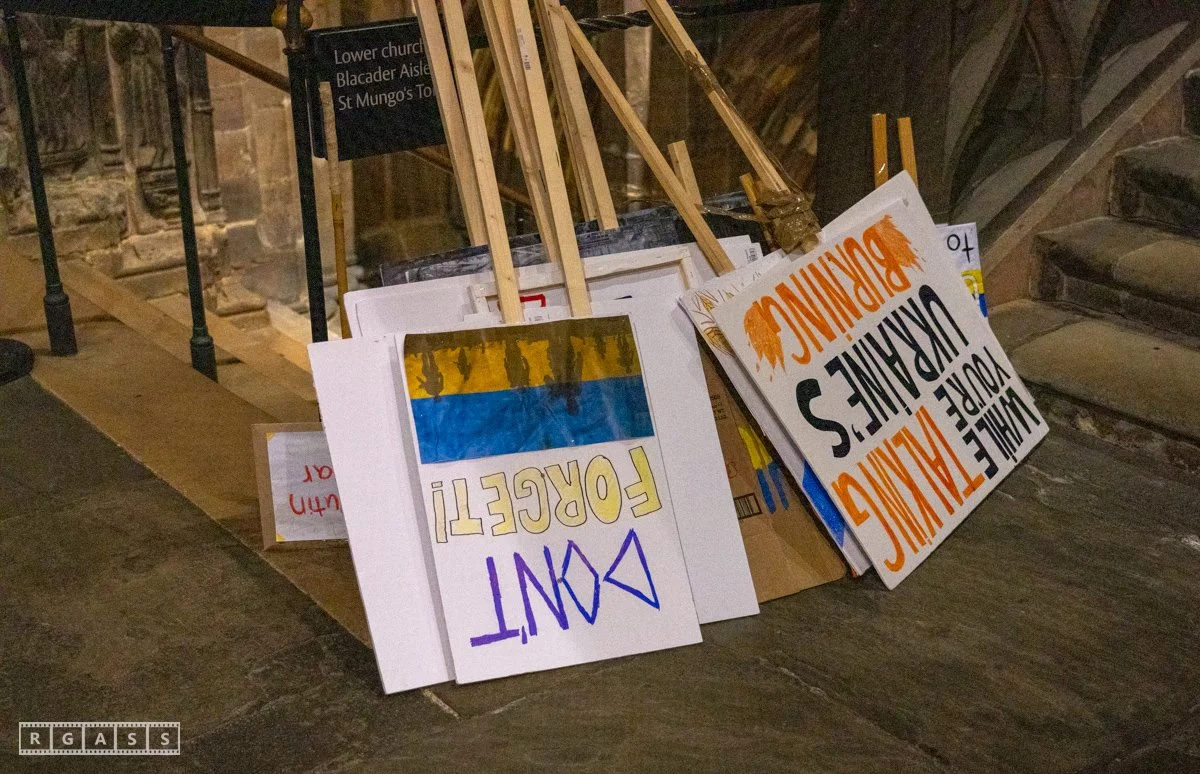 Lower church
Blacader Aisle
St Mungo's
DON'T
FORGET!
WHILE
YOU'RE
TALKING
UKRAINE'S
BURNING
to
RGASS